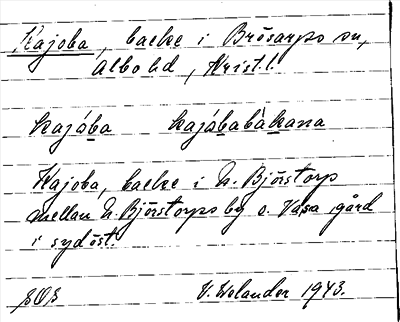 Kajoba, backe i Brösarps sn,
Albo hd, Krist.l.
kajába kajábabàkana
Kajoba, backe i N. Björstorp
mellan N. Björstorps by o. Vasa gård
i sydöst.
V. Welander 1943.